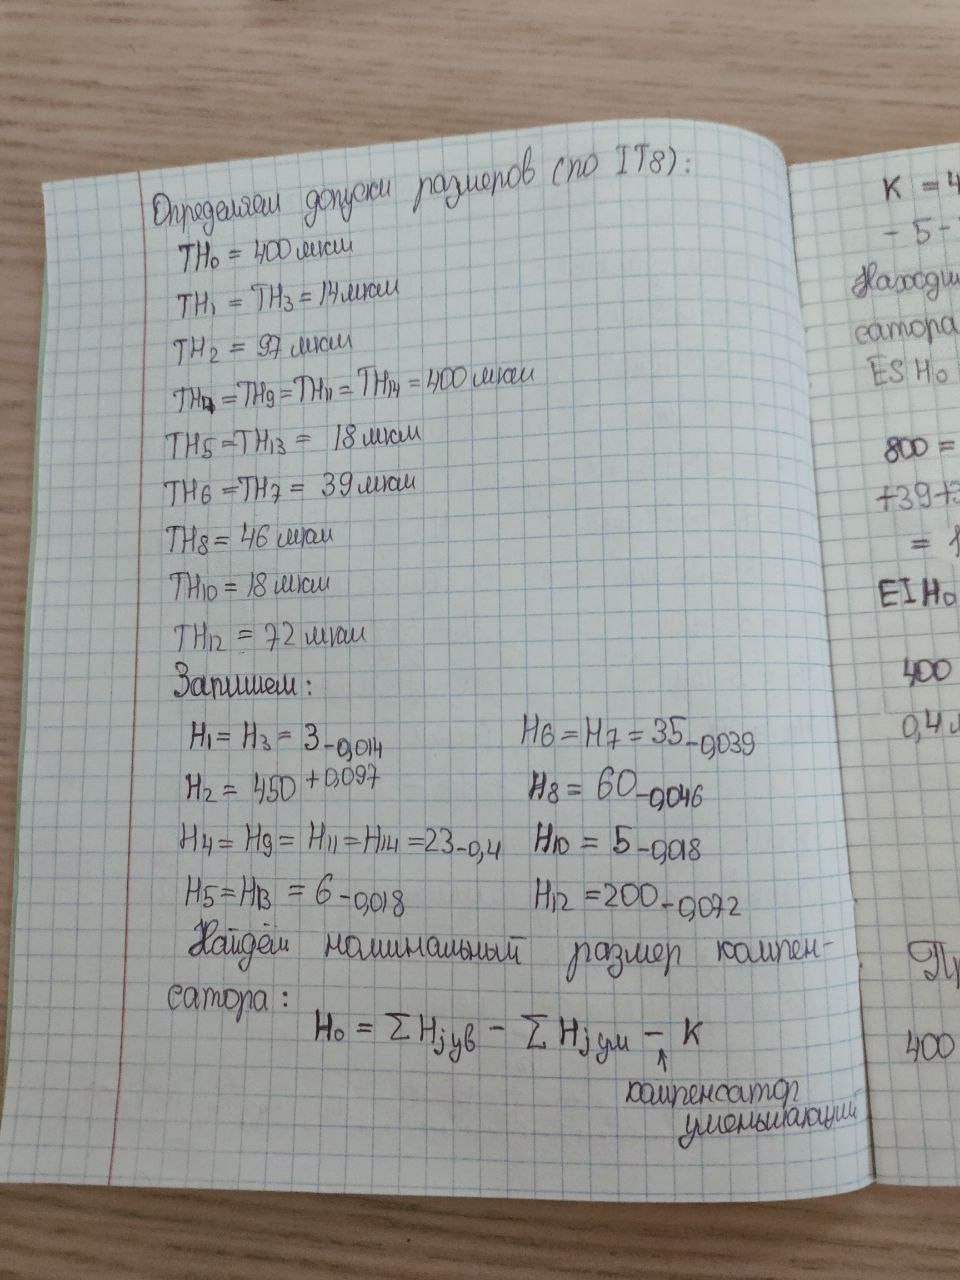 Определяем допуски размеров (по IT8):
TH₀ = 400 мкм
TH₁ = TH₃ = 14 мкм
TH₂ = 97 мкм
TH₄ = TH₉ = TH₁₁ = TH₁₄ = 400 мкм
TH₅ = TH₁₃ = 18 мкм
TH₆ = TH₇ = 39 мкм
TH₈ = 46 мкм
TH₁₀ = 18 мкм
TH₁₂ = 72 мкм
Запишем:
H₁ = H₃ = 3 -0,014
H₂ = 450 +0,097
H₄ = H₉ = H₁₁ = H₁₄ = 23 -0,4
H₅ = H₁₃ = 6 -0,018
H₆ = H₇ = 35 -0,039
H₈ = 60 -0,046
H₁₀ = 5 -0,018
H₁₂ = 200 -0,072
Найдём номинальный размер компен-
сатора:
H₀ = Σ Hj ув - Σ Hj ум - K
↑
компенсатор
уменьшающий
K = 4
- 5 -
сатора
ES H₀
800 =
+39+3
=
EI H₀
400
0,4
400